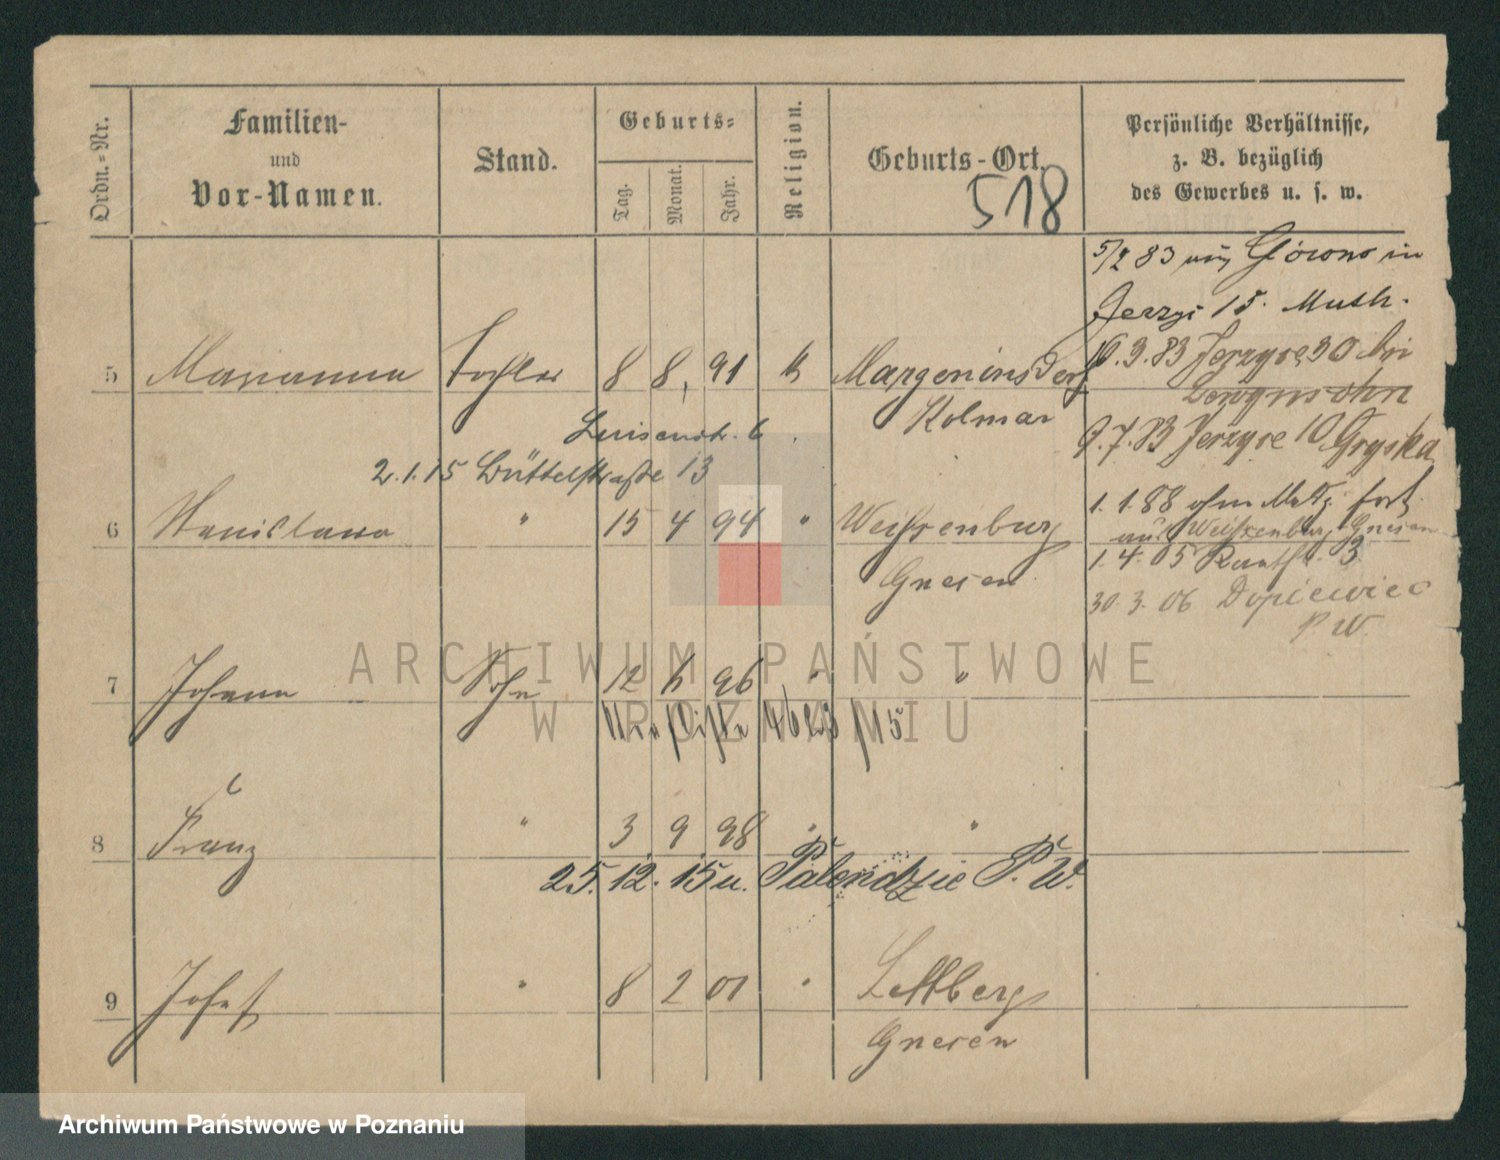 Ordn.-Nr.
Familien-
und
Vor-Namen.
Stand.
Geburts-
Tag.
Monat.
Jahr.
Religion.
Geburts-Ort.
518
Persönliche Verhältnisse,
z. B. bezüglich
des Gewerbes u. s. w.
5/2 83 in
Jerzyi 15.
5 Marianna Tochter 8 8. 91 k Margoninsdorf
Kolmar
10.3.83 Jerzyce 30 bei
9.7.83 Jerzyce 10 Gryska
Luisenstr. 6
2.1.15 Büttelstraße 13
6 Stanislawa " 15 4 94 " Weißenburg
Gnesen
1.1.88 fort
auf Weißenburg Gnesen
1.4.05 3
30.3.06 Dopiewiec
P. W.
7 Johann Sohn 12 6 96 " "
15
8 Franz " 3 9 98 " "
25.12.15 u. Palendzie P. W.
9 Josef " 8 2 01 " Lettberg
Gnesen
ARCHIWUM PAŃSTWOWE
W POZNANIU
Archiwum Państwowe w Poznaniu